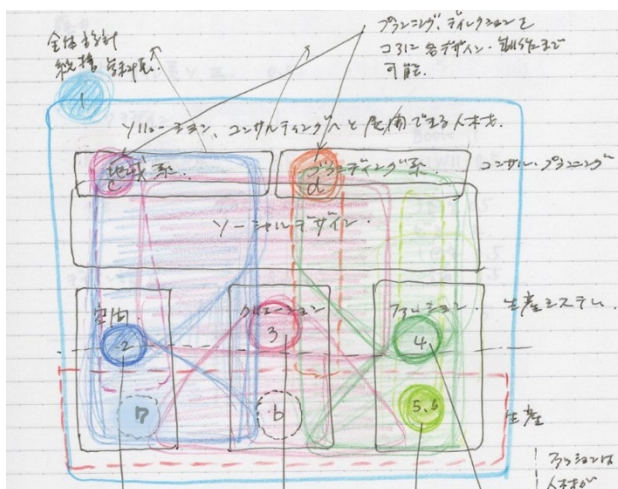 全体設計
統括 学科長
プランニング、ディレクションを
コアに各デザイン・制作まで
可能.
1
ソリューション、コンサルティングへと展開できる人材を.
地域系.
c
ブランディング系.
d
コンサル・プランニング
ソーシャルデザイン.
空間.
クリエーション.
ファッション.
生産システム.
2
3
4
7
6
5.6
生産
ファッションは
人材が